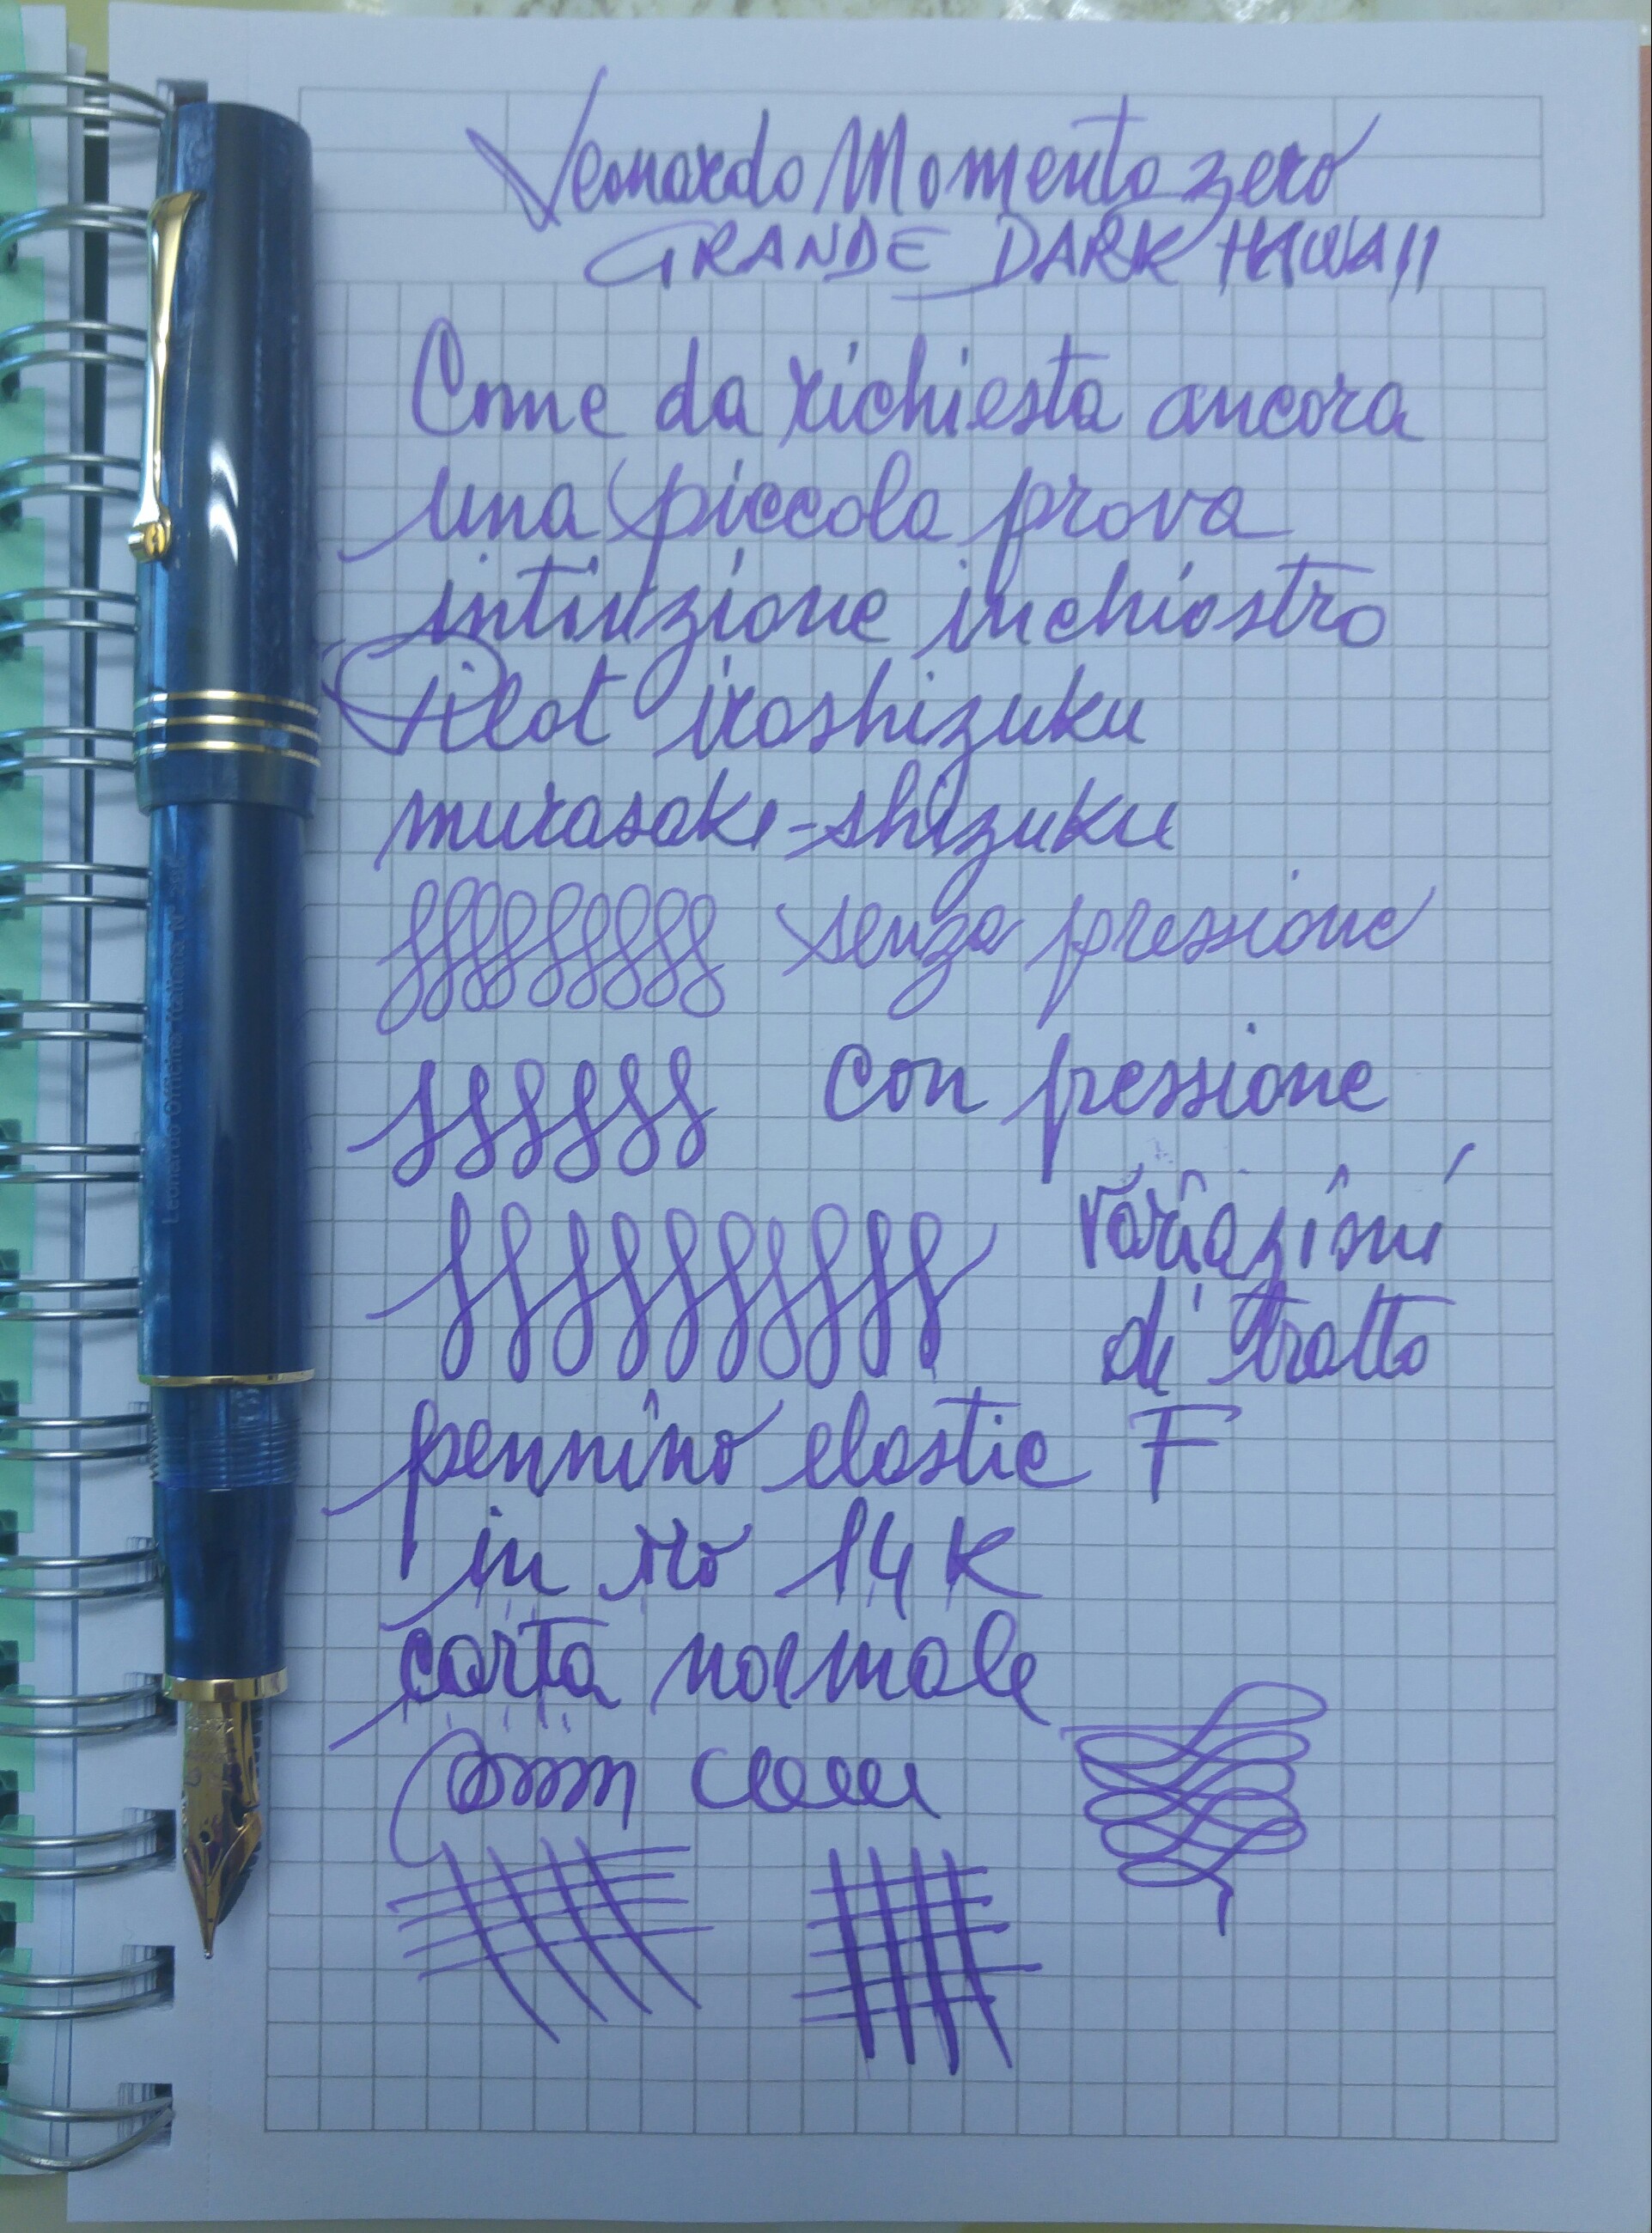 Leonardo Momento zero
GRANDE DARK HAWAII
Come da richiesta ancora
una piccola prova
intinzione inchiostro
Pilot iroshizuku
murasaki-shizuku
senza pressione
con pressione
variazioni
di tratto
pennino elastic F
in oro 14 K
carta normale
Leonardo Officina Italiana N°